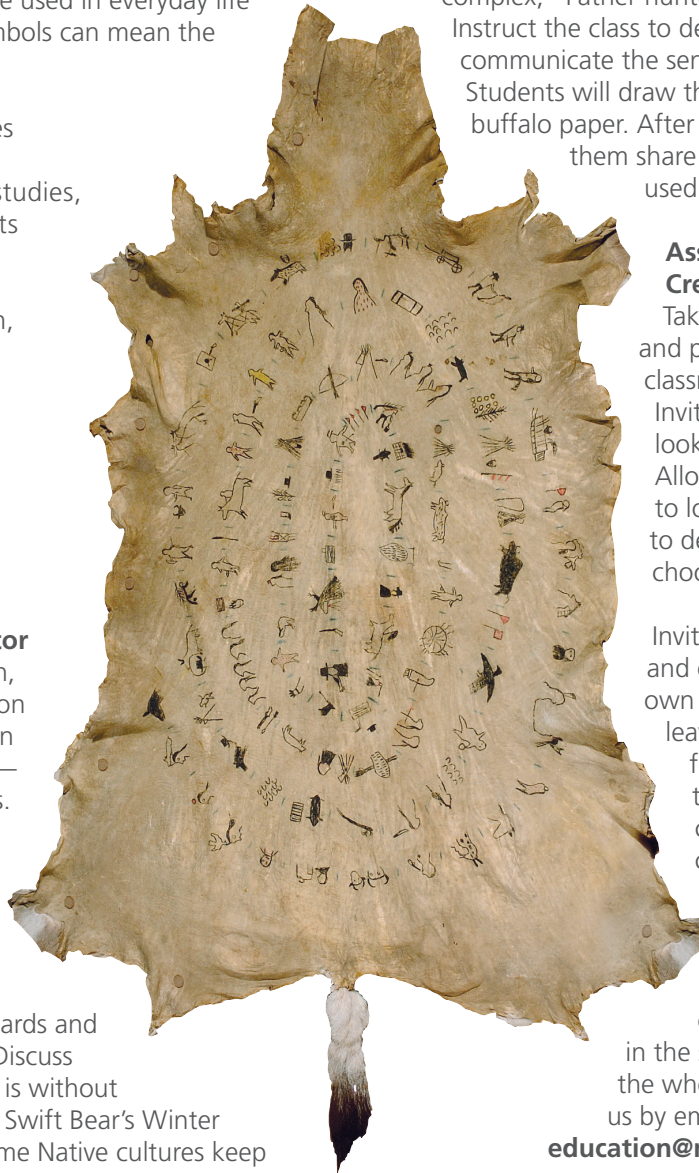 e used in everyday life
mbols can mean the
es
studies,
ts
n,
tor
n,
on
n
—
s.
ards and
Discuss
is without
Swift Bear's Winter
me Native cultures keep
complex, "Father hunt
Instruct the class to de
communicate the sen
Students will draw th
buffalo paper. After
them share
used
Ass
Cre
Tak
and p
classr
Invit
look
Allo
to lo
to de
choo
Invit
and c
own
lea
f
t
c
c
in the
the who
us by em
education@n